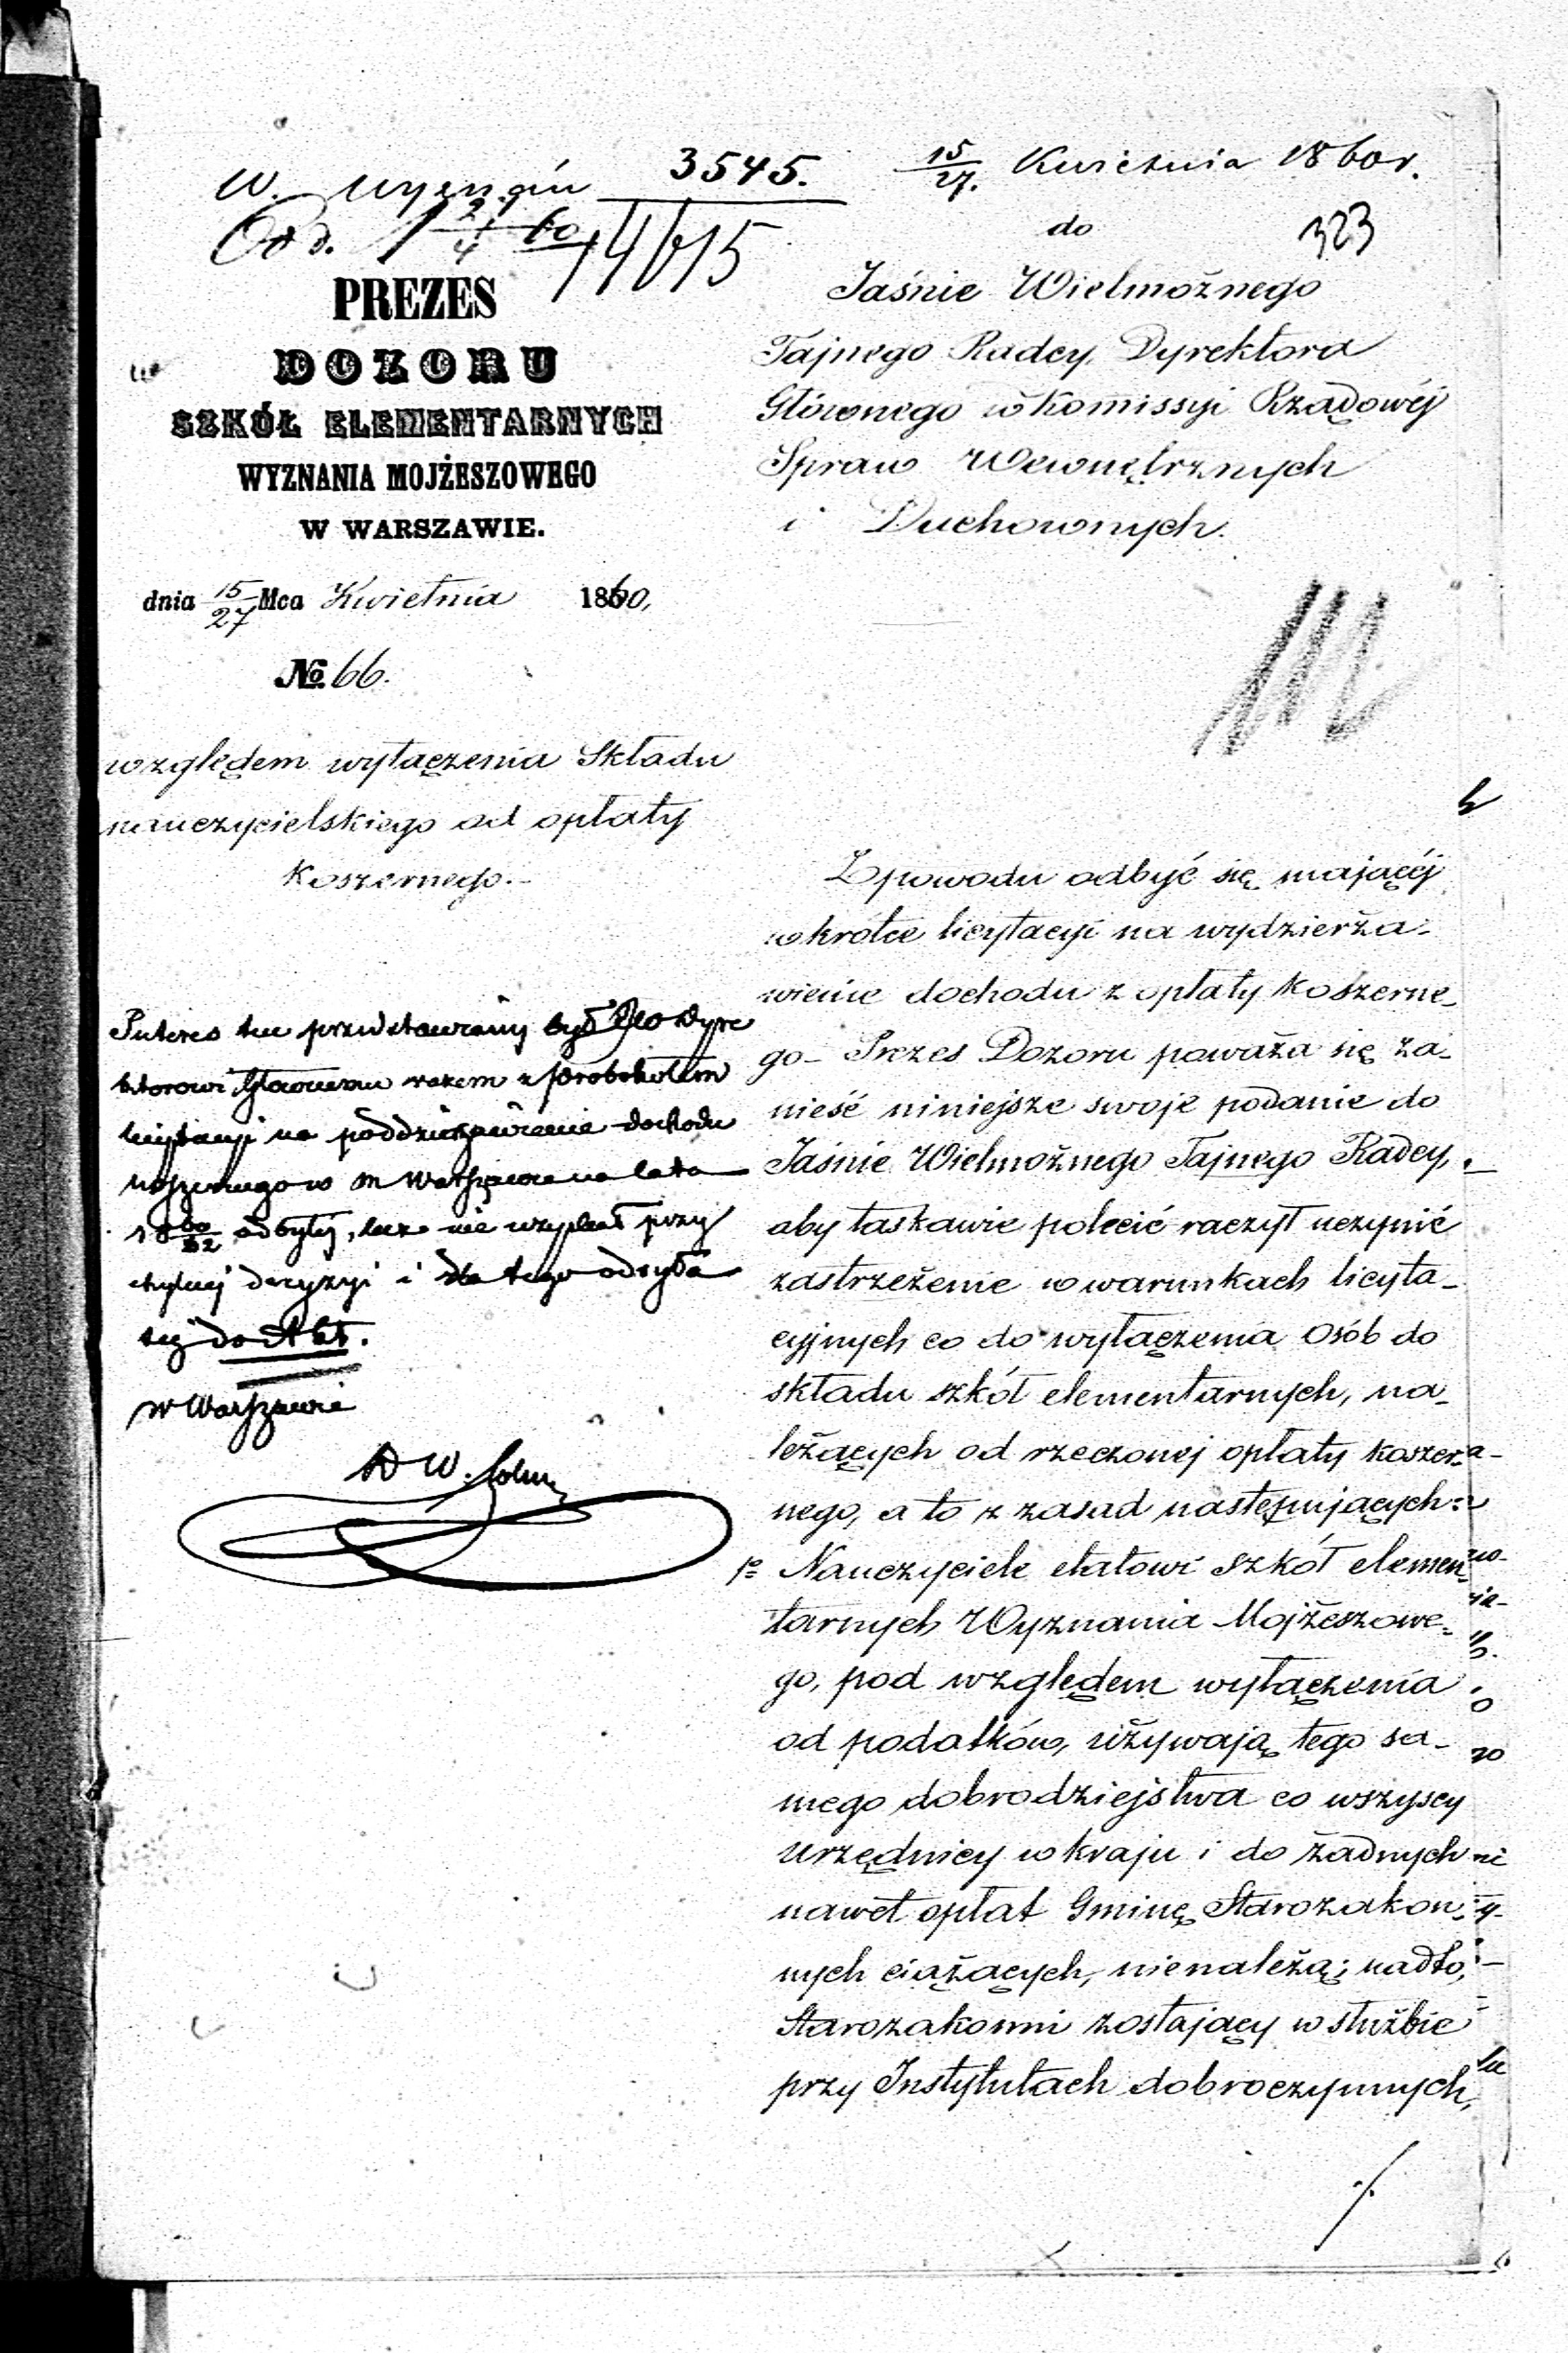 W. wyznań 3545.
Odd. 1 27/4 60 14615
PREZES
DOZORU
SZKÓŁ ELEMENTARNYCH
WYZNANIA MOJŻESZOWEGO
W WARSZAWIE.
dnia 15/27 Mca Kwietnia 1860,
No. 66.
względem wyłączenia Składu
nauczycielskiego od opłaty
Koszernego.-
Interes ten przedstawiany był JW Dyre
ktorowi Głównemu razem z protokołem
licytacyi na poddzierżawienie dochodu
koszernego w m Warszawie na lata
18 60/62 odbytej, lecz nie uzyskał przy
chylnej decyzyi i dla tego odsyła
się do Akt.
w Warszawie
15/27. Kwietnia 1860 r.
do
323
Jaśnie Wielmożnego
Tajnego Radcy, Dyrektora
Głównego w Kommissyi Rządowéj
Spraw Wewnętrznych
i Duchownych.
Z powodu odbyć się mającéj
wkrótce licytacyi na wydzierża-
wienie dochodu z opłaty koszerne-
go- Prezes Dozoru poważa się za-
nieść niniejsze swoje podanie do
Jaśnie Wielmożnego Tajnego Radcy,
aby łaskawie polecić raczył uczynić
zastrzeżenie w warunkach licyta-
cyjnych co do wyłączenia Osób do
składu szkół elementarnych, na-
leżących od rzeczonej opłaty koszer-
nego, a to z zasad następujących:
1o Nauczyciele etatowi szkół elemen-
tarnych Wyznania Mojżeszowe-
go, pod względem wyłączenia
od podatków, używają tego sa-
mego dobrodziejstwa co wszyscy
urzędnicy w kraju i do żadnych
nawet opłat Gminę Starozakon-
nych ciążących, nienależą; nadto,
Starozakonni zostający w służbie
przy Instytutach dobroczynnych,
./.